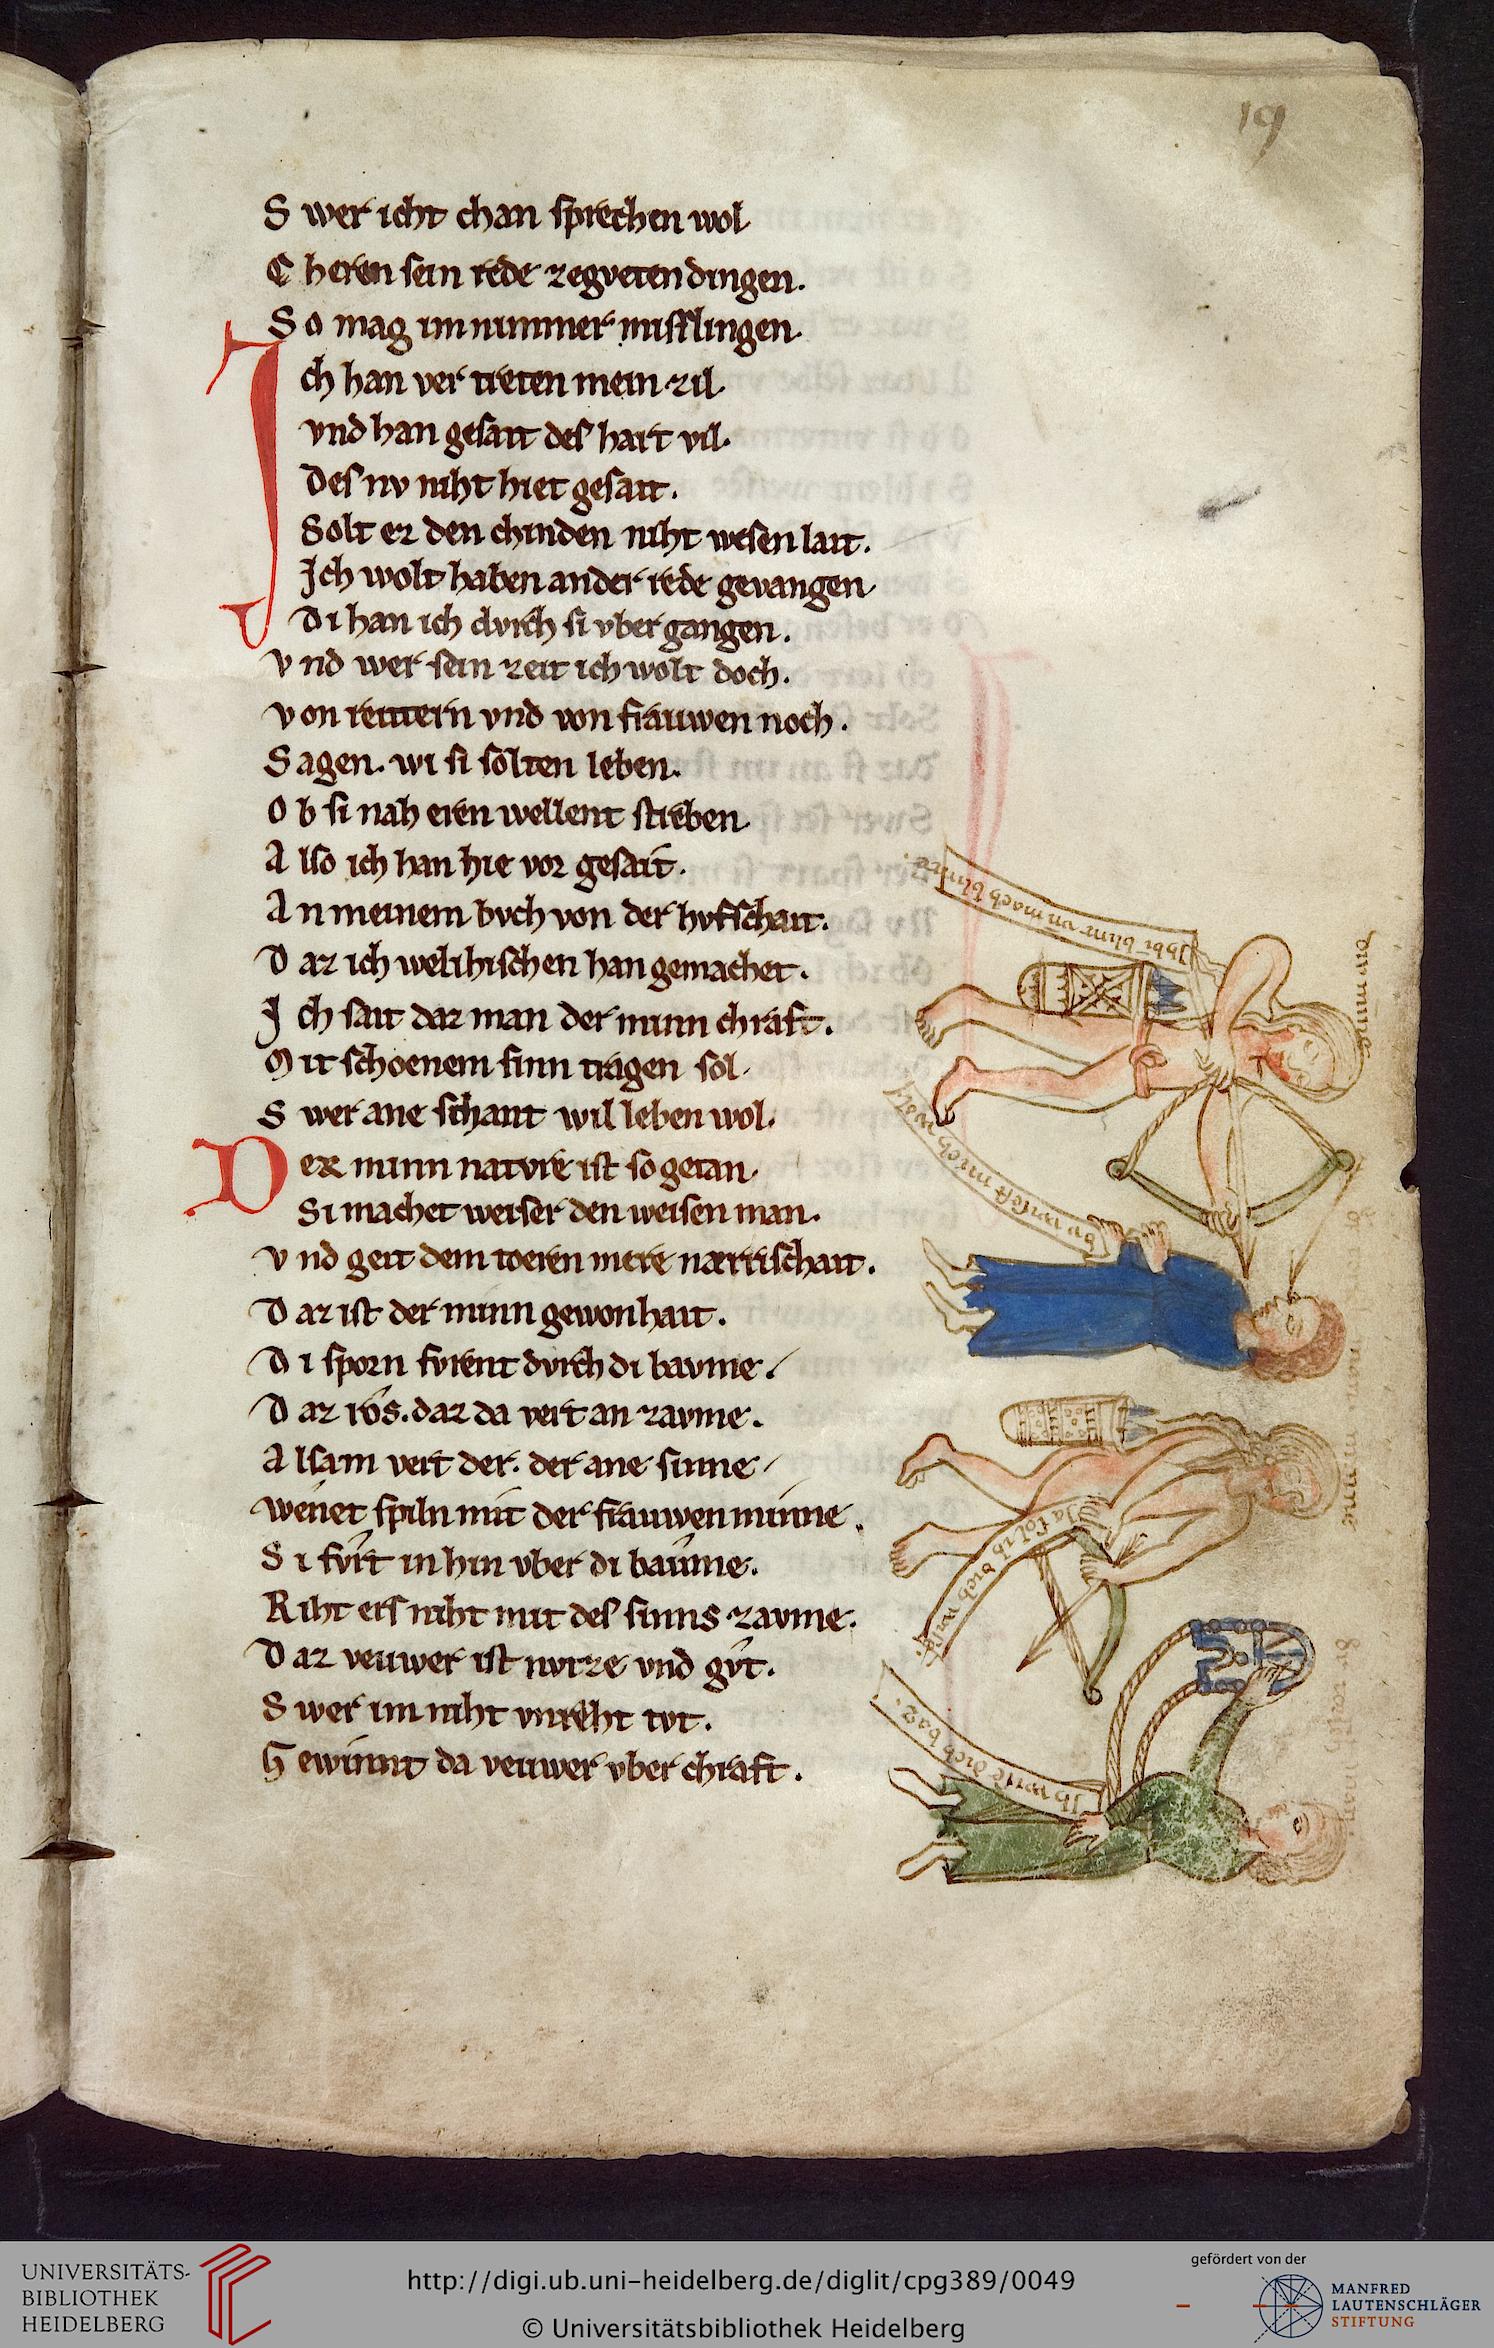 19
S wer icht chan sprechen wol
C heren sein rede zegveten dingen.
S o mag im nimmer misslingen.
Ich han ver treten mein zil.
vnd han gesait des hart vil.
Des nv niht hiet gesait.
Solt ez den chinden niht wesen lait.
Ich wolt haben ander rede gevangen
Di han ich dvrch si vber gangen.
V nd wer sein zeit ich wolt doch.
V on reittern vnd von frauwen noch.
S agen. wi si solten leben.
O b si nah eren wellent streben.
A lso ich han hie vor gesait.
A n meinem bvch von der hvfschait.
D az ich welihischen han gemachet.
I ch sait daz man der minn chraft.
M it schoenem sinn tragen sol.
S wer ane schant wil leben wol.
Der minn natvre ist so getan.
Si machet weiser den weisen man.
V nd geit dem toeren mere nærrischait.
D az ist der minn gewonhait.
D i sporn fvrent dvrch di bavme.
D az ros. daz da vert an zavme.
A lsam vert der. der ane sinne
Wenet spiln mit der frauwen minne.
S i fvrt in hin vber di baume.
Riht ers niht mit des sinns zavme.
D az veuwer ist nvtze vnd gvt.
S wer im niht vnreht tvt.
G ewinnt da veuwer vber chraft.
Ichbi blint vn mach blinte.
div minne
du trifest mich wol
div minne
Ja sol ich dich
Ich dich baz.
UNIVERSITÄTS-
BIBLIOTHEK
HEIDELBERG
http://digi.ub.uni-heidelberg.de/diglit/cpg389/0049
© Universitätsbibliothek Heidelberg
gefördert von der
MANFRED
LAUTENSCHLÄGER
STIFTUNG